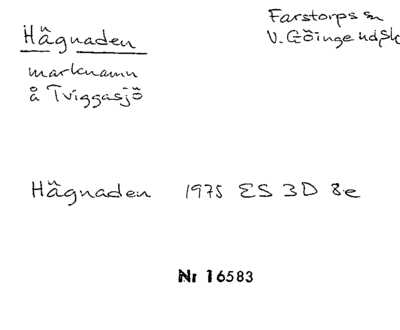 Hägnaden
marknamn
å Tviggasjö
Farstorps sn
V. Göinge hd, Sk
Hägnaden 1975 ES 3D 8e
Nr 16583